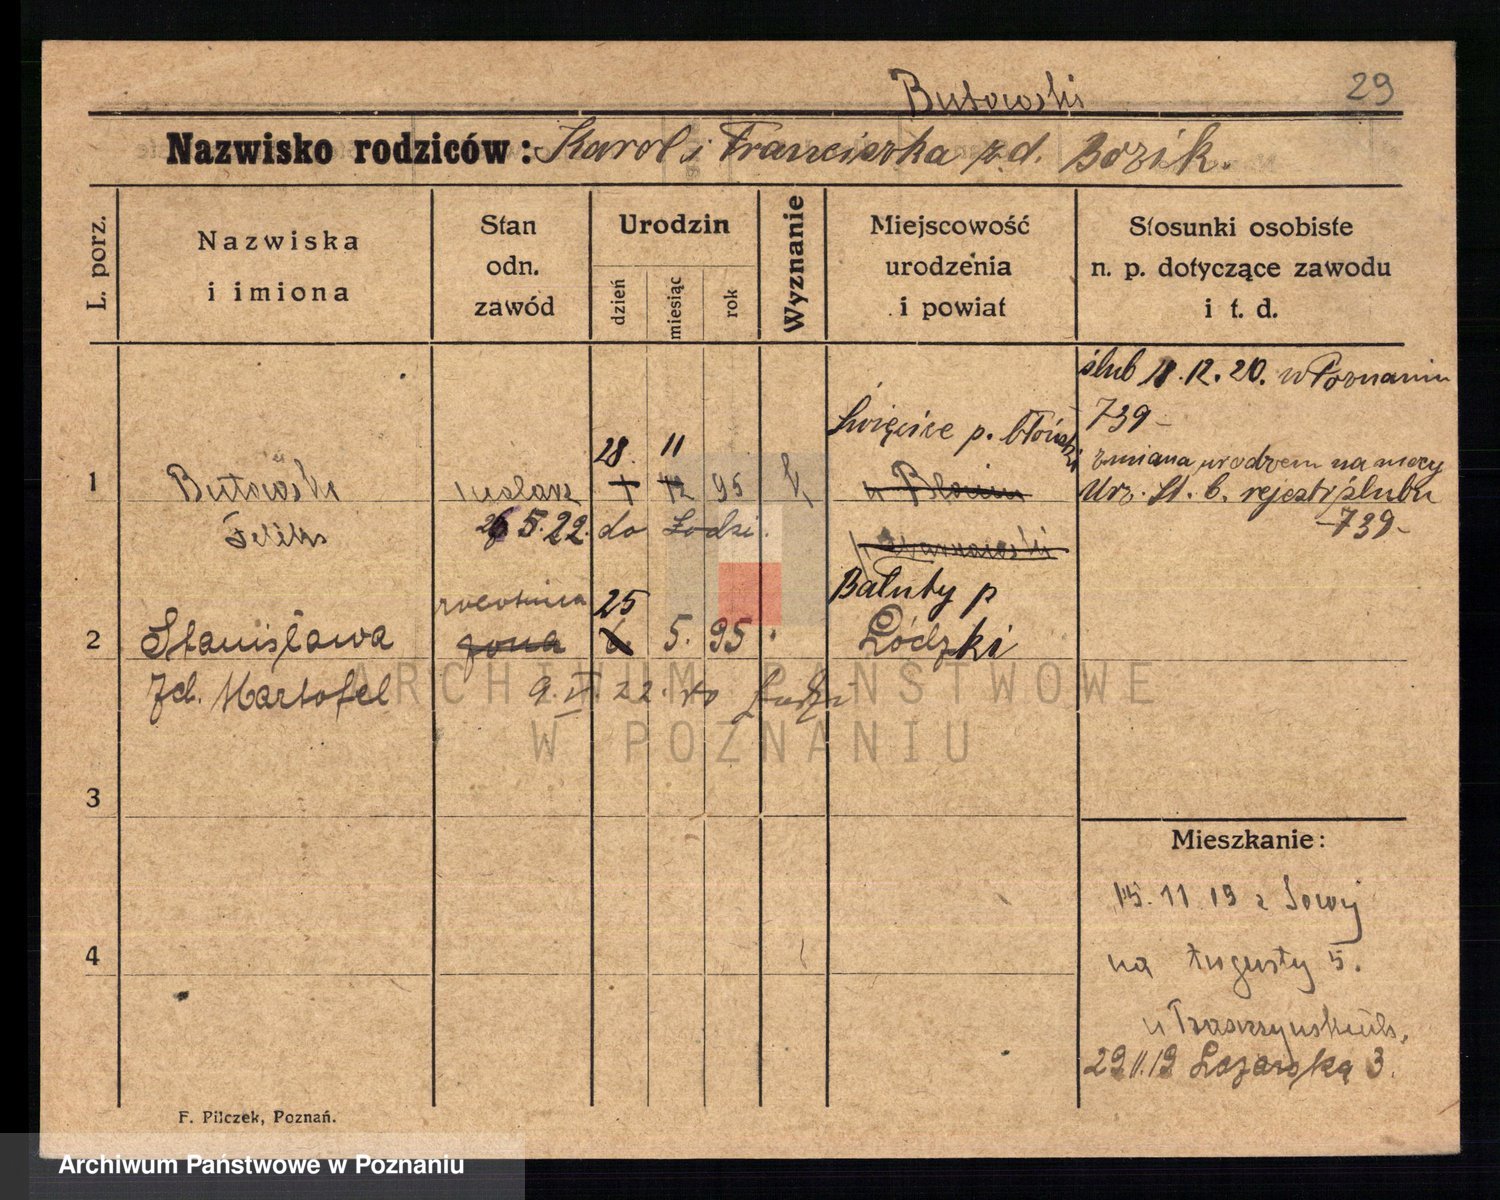 Butowski
29
Nazwisko rodziców: Karol i Franciszka zd. Bozik.
L. porz.
Nazwiska
i imiona
Stan
odn.
zawód
Urodzin
dzień
miesiąc
rok
Wyznanie
Miejscowość
urodzenia
i powiat
Stosunki osobiste
n. p. dotyczące zawodu
i t. d.
ślub 18.12.20. w Poznaniu
739-
zmiana urodzen na mocy
Urz. St. C. rejestr ślubu
-739-
1
Butowski
Feliks
28. 11
7 12 95
Święcice p. błoński
5.22. do Łodzi.
2
Stanisława
zd. Kartofel
robotnica
żona
25
6. 5. 95
Bałuty p
Łódzki
9. V. 22. do Łodzi
3
4
Mieszkanie:
15. 11 19 z Sowej
na Augusty 5.
29.11.19 Łazarską 3.
F. Pilczek, Poznań.
ARCHIWUM PAŃSTWOWE
W POZNANIU
Archiwum Państwowe w Poznaniu